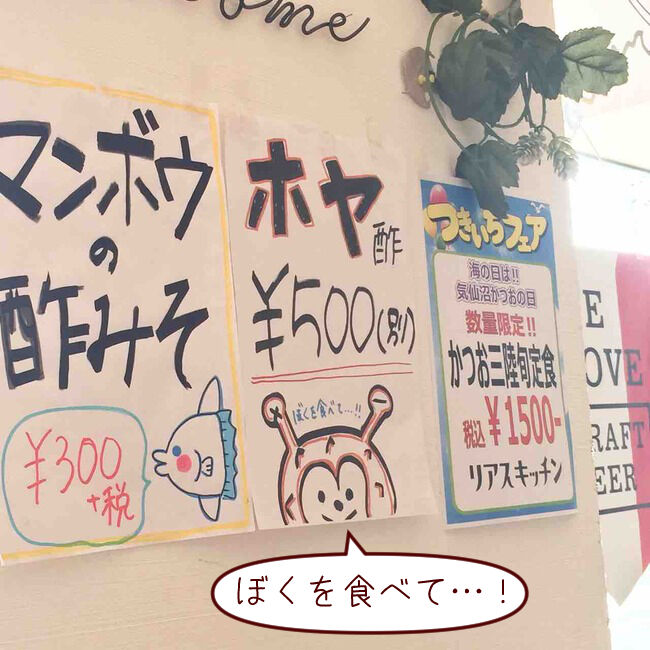 マンボウ
の
酢みそ
¥300
+税
ホヤ
酢
¥500(別)
ぼくを食べて…!!
つきいちフェア
海の日は!!
気仙沼かつおの日
数量限定!!
かつお三陸旬定食
税込¥1500-
リアスキッチン
ぼくを食べて…!